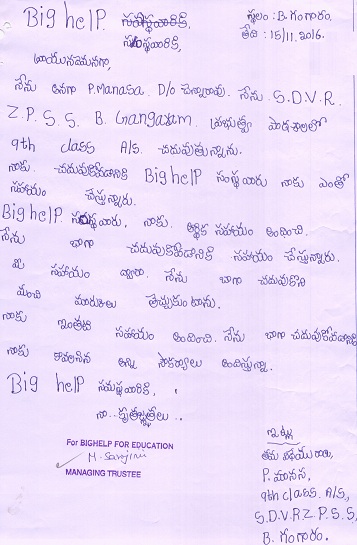 Big help సంస్థవారికి,
స్థలం: B. గంగారం.
సంస్థవారికి,
తేది: 15/11.2016.
వ్రాయునమనగా,
నేను అనగా P. Manasa. D/o చిన్నారావు. నేను. S.D.V.R.
Z.P.S.S. B. Gangaram. ప్రభుత్వ పాఠశాలలో
9th class A/S. చదువుతున్నాను.
నాకు. చదువుకోవడానికి Big help సంస్థ వారు నాకు ఎంతో
సహాయం చేస్తున్నారు.
Big help. సంస్థ వారు, నాకు. ఆర్థిక సహాయం అందించి.
నేను బాగా చదువుకోవడానికి సహాయం చేస్తున్నారు.
మీ సహాయం ద్వారా. నేను బాగా చదువుకొని
మంచి మార్కులు తెచ్చుకుంటాను.
నాకు ఇంతటి సహాయం అందించి. నేను బాగా చదువుకోవడానికి
నాకు కావలసిన అన్ని సౌకర్యాలు అందిస్తున్నా.
Big help సంస్థవారికి,
నా.. కృతజ్ఞతలు..
For BIGHELP FOR EDUCATION
M. Sarojini
MANAGING TRUSTEE
ఇట్లు
తమ విధేయురాలు,
P. మానస,
9th class. A/S,
S.D.V.R Z.P.S.S,
B. గంగారం.